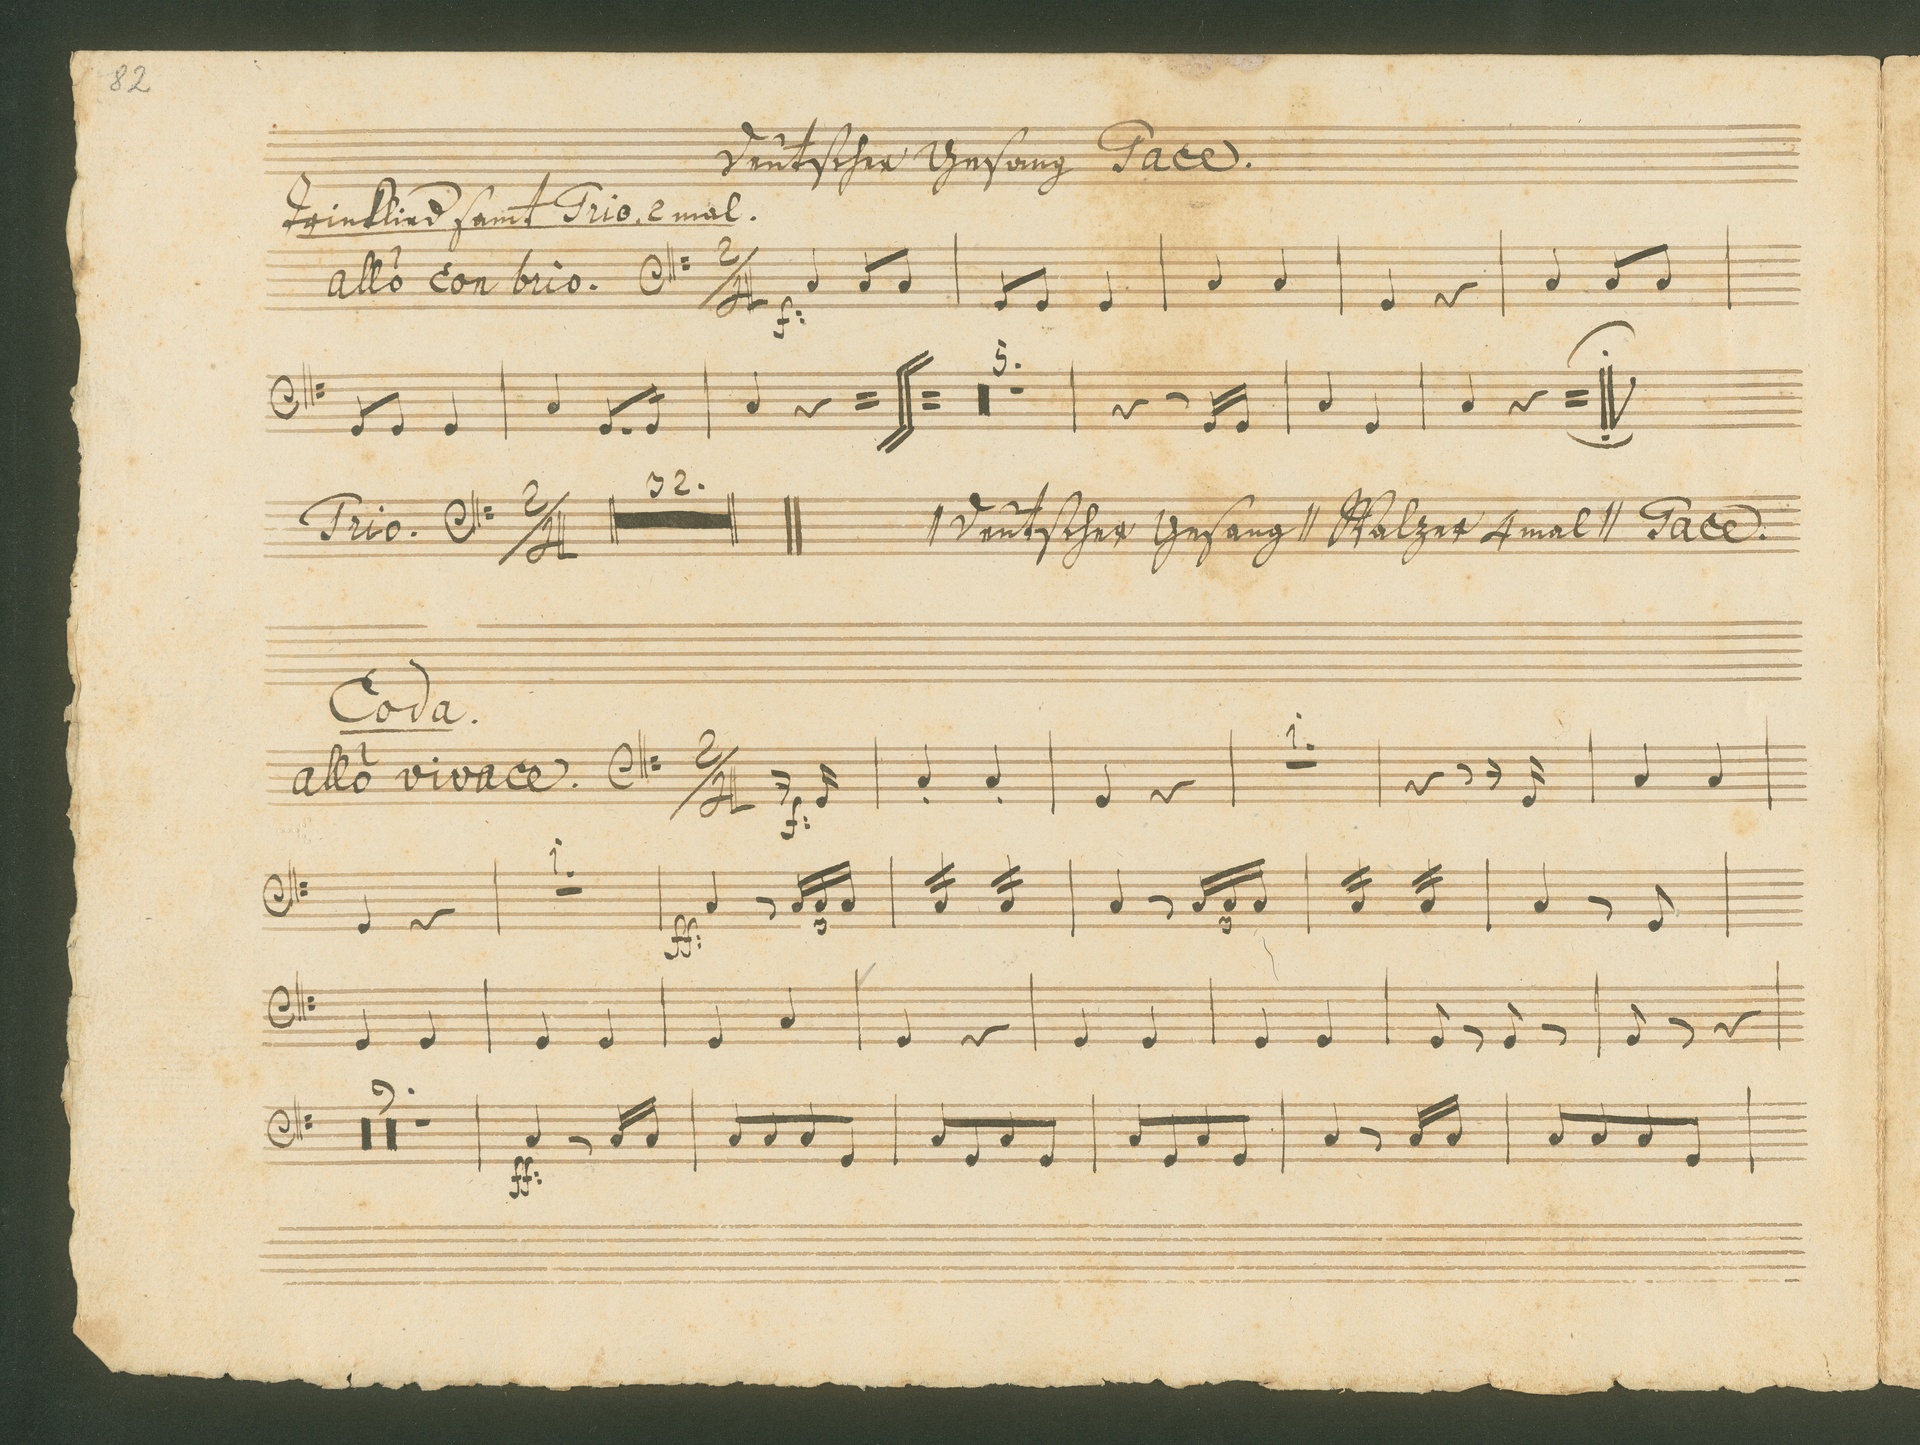 82
Deutscher Gesang Tace.
Trinklied samt Trio. 2 mal.
allo con brio. 2/4 f:
5.
Trio. 2/4 32. // Deutscher Gesang // Walzer 4 mal // Tace.
Coda.
allo vivace. 2/4 f: 1.
1. ff: 3 3
9.
ff: